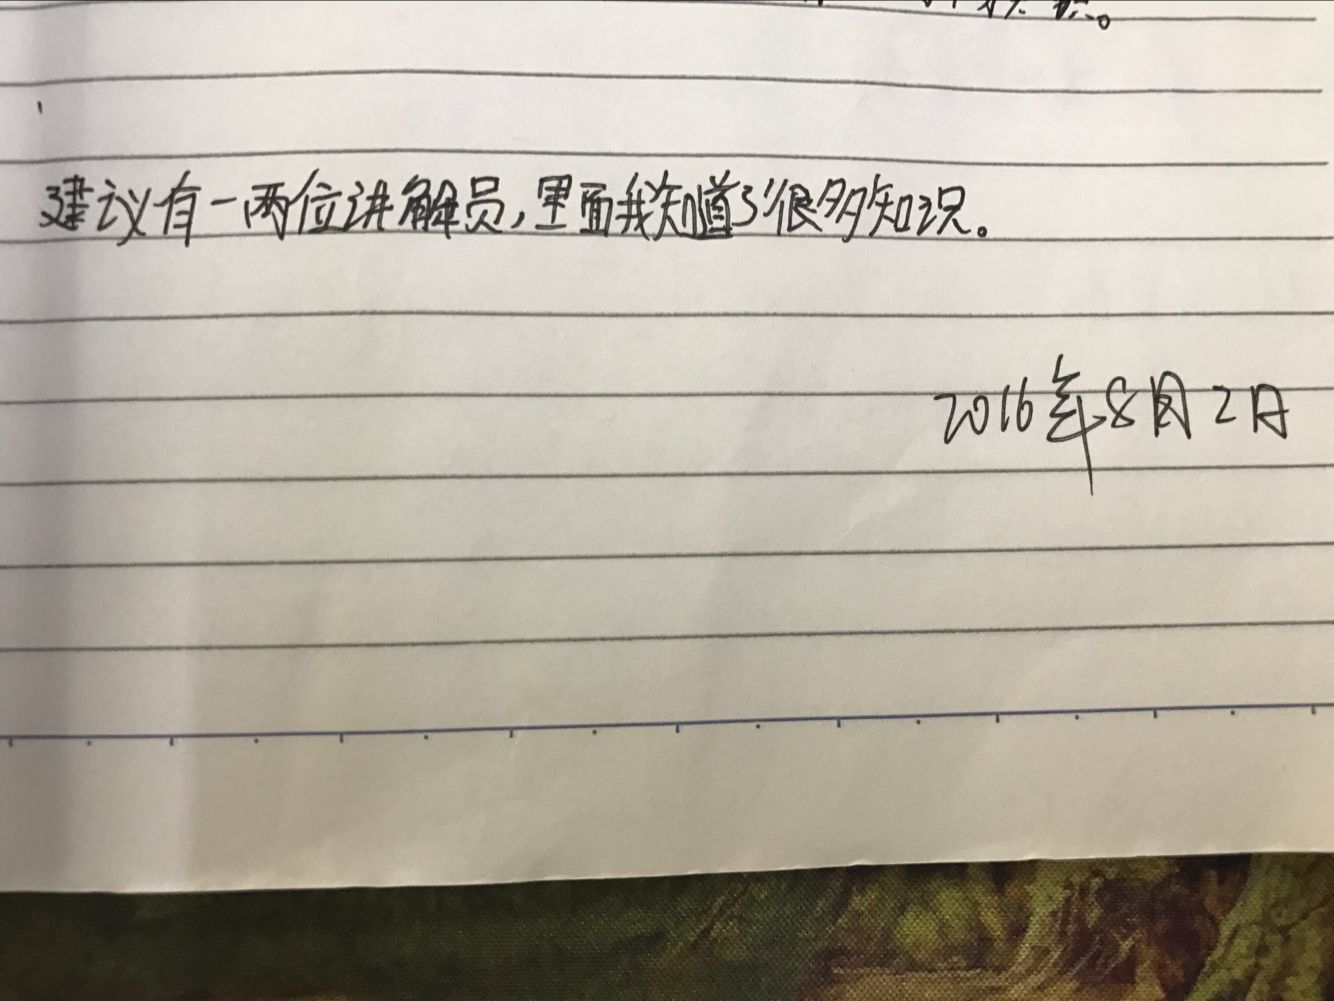 建议有一两位讲解员,里面我知道了很多知识。
2016年8月2日